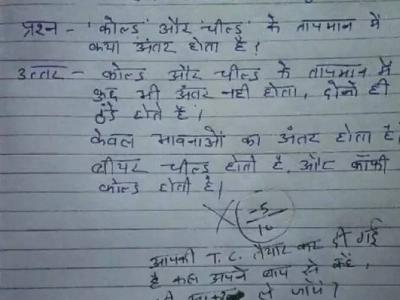 प्रश्न - 'कोल्ड' और 'चील्ड' के तापमान में
क्या अंतर होता है?
उत्तर - कोल्ड और चील्ड के तापमान में
कुछ भी अंतर नही होता, दोनो ही
ठंडे होते है।
केवल भावनाओं का अंतर होता है
बीयर चील्ड होती है, और कॉफी
कोल्ड होती है।
-5
10
आपकी T.C. तैयार कर दी गई
है कल अपने बाप से कहें,
ले जायें?